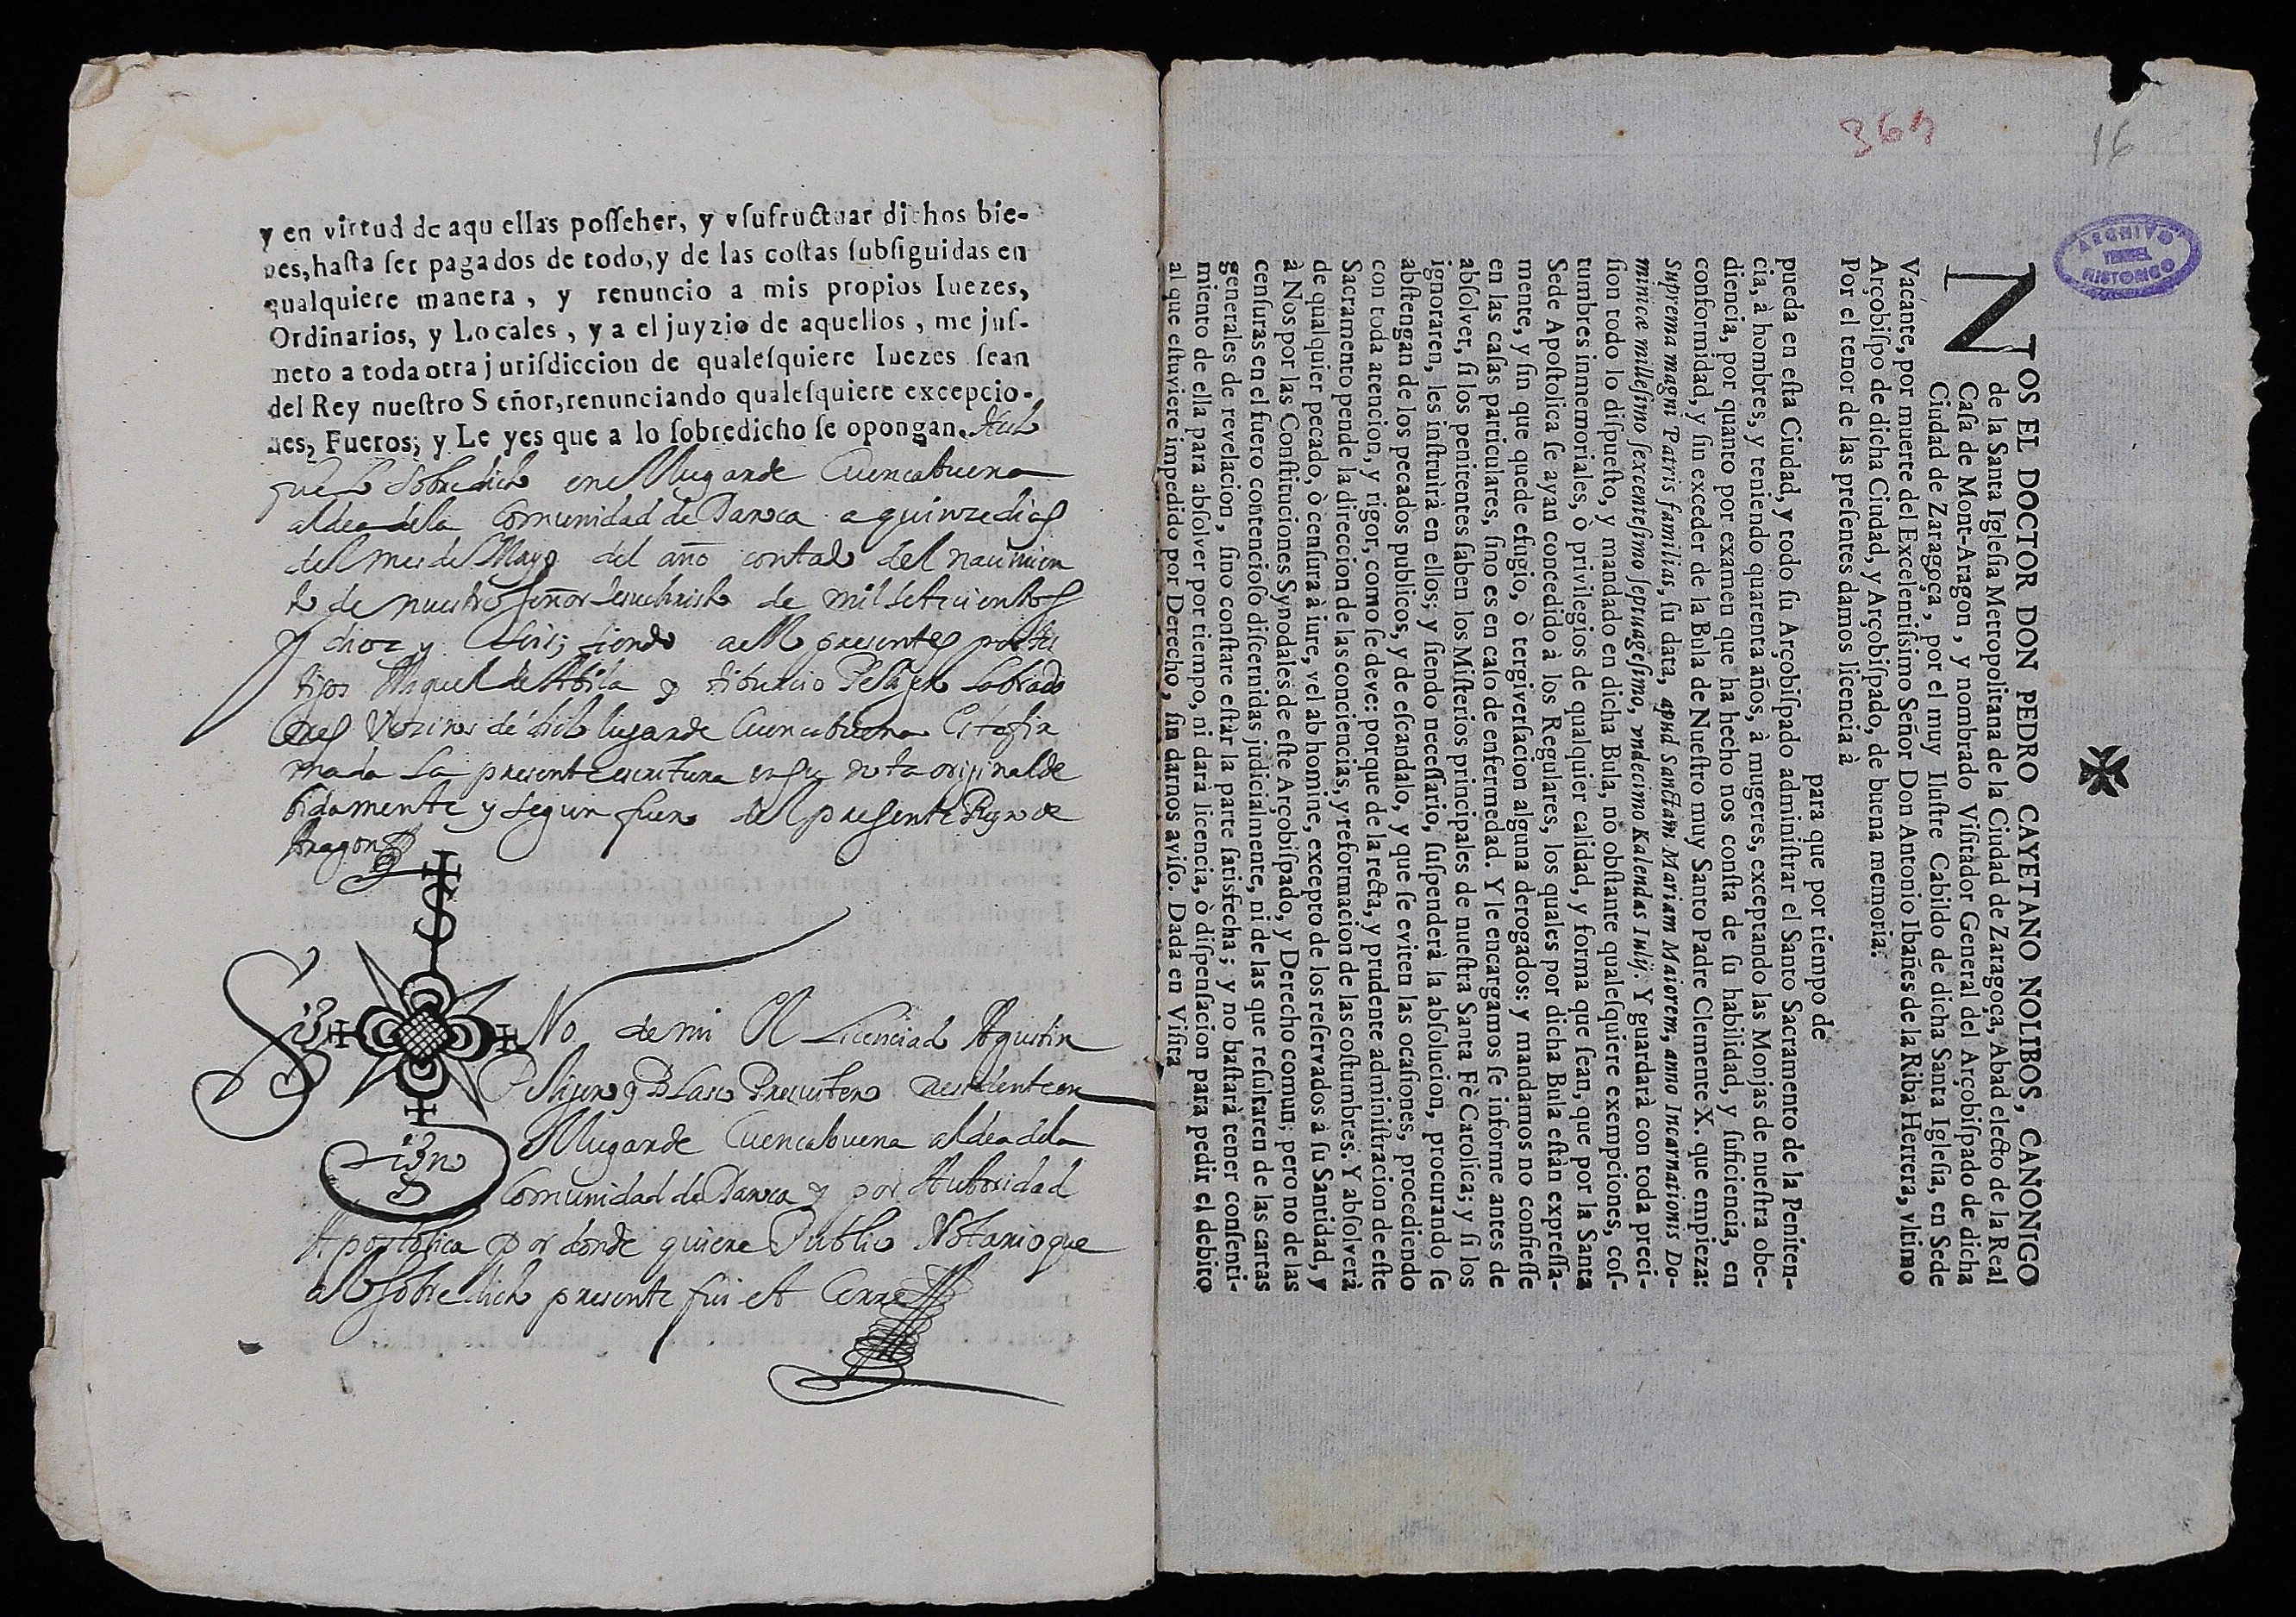 y en virtud de aqu ellas poſſeher, y vſufructuar dichos bie-
nes, haſta ſer pagados de todo, y de las coſtas ſubſiguidas en
qualquiere manera, y renuncio a mis propios Iuezes,
Ordinarios, y Locales, y a el juyzio de aquellos, me juſ-
meto a toda otra juriſdiccion de qualeſquiere Iuezes ſean
del Rey nueſtro S eñor, renunciando qualeſquiere excepcio-
nes, Fueros; y Le yes que a lo ſobredicho ſe opongan. Hecho
fue lo Sobredicho en el lugar de Cuencabuena
aldea de la Comunidad de Daroca a quinze dias
del mes de Mayo del año contado del nacimien
to de nuestro Señor Jesuchristo de mil setecientos
y diez y seis; siendo a ello presentes por tes
tigos Miguel de Abila y Tiburcio Pelijero Labrado
res Vezinos de dicho lugar de Cuencabuena Esta fir
mada la presente escritura en su nota original de
bidamente y segun fuero del presente Reyno de
Aragon
Sig
No de mi El Licenciado Agustin
Pelijero y Blasco Presuitero residente en
el lugar de Cuencabuena aldea de la
Comunidad de Daroca y por Autoridad
Apostolica por donde quiere Publico Notario que
a lo sobredicho presente fui et Cerre
364
16
ARCHIVO
TERUEL
HISTORICO
NOS EL DOCTOR DON PEDRO CAYETANO NOLIBOS, CANONIGO
de la Santa Igleſia Metropolitana de la Ciudad de Zaragoça, Abad electo de la Real
Caſa de Mont-Aragon, y nombrado Viſitador General del Arçobiſpado de dicha
Ciudad de Zaragoça, por el muy Iluſtre Cabildo de dicha Santa Igleſia, en Sede
Vacante, por muerte del Excelentiſsimo Señor Don Antonio Ibañes de la Riba Herrera, vltimo
Arçobiſpo de dicha Ciudad, y Arçobiſpado, de buena memoria.
Por el tenor de las preſentes damos licencia à
para que por tiempo de
pueda en eſta Ciudad, y todo ſu Arçobiſpado adminiſtrar el Santo Sacramento de la Peniten-
cia, à hombres, y teniendo quarenta años, à mugeres, exceptando las Monjas de nueſtra obe-
diencia, por quanto por examen que ha hecho nos conſta de ſu habilidad, y ſuficiencia, en
conformidad, y ſin exceder de la Bula de Nueſtro muy Santo Padre Clemente X. que empieza:
Suprema magni Patris familias, ſu data, apud Sanctam Mariam Maiorem, anno Incarnationis Do-
minicæ milleſimo ſexcenteſimo ſeptuageſimo, vndecimo Kalendas Iulij. Y guardarà con toda preci-
ſion todo lo diſpueſto, y mandado en dicha Bula, no obſtante qualeſquiere exempciones, coſ-
tumbres inmemoriales, ò privilegios de qualquier calidad, y forma que ſean, que por la Santa
Sede Apoſtolica ſe ayan concedido à los Regulares, los quales por dicha Bula eſtàn expreſſa-
mente, y ſin que quede efugio, ò tergiverſacion alguna derogados: y mandamos no confieſſe
en las caſas particulares, ſino es en caſo de enfermedad. Y le encargamos ſe informe antes de
abſolver, ſi los penitentes ſaben los Miſterios principales de nueſtra Santa Fè Catolica; y ſi los
ignoraren, les inſtruirà en ellos; y ſiendo neceſſario, ſuſpenderà la abſolucion, procurando ſe
abſtengan de los pecados publicos, y de eſcandalo, y que ſe eviten las ocaſiones, procediendo
con toda atencion, y rigor, como ſe deve: porque de la recta, y prudente adminiſtracion de eſte
Sacramento pende la direccion de las conciencias, y reformacion de las coſtumbres. Y abſolverà
de qualquier pecado, ò cenſura à iure, vel ab homine, excepto de los reſervados à ſu Santidad, y
à Nos por las Conſtituciones Synodales de eſte Arçobiſpado, y Derecho comun; pero no de las
cenſuras en el fuero contencioſo diſcernidas judicialmente, ni de las que reſultaren de las cartas
generales de revelacion, ſino conſtare eſtàr la parte ſatisfecha; y no baſtarà tener conſenti-
miento de ella para abſolver por tiempo, ni darà licencia, ò diſpenſacion para pedir el debito
al que eſtuviere impedido por Derecho, ſin darnos aviſo. Dada en Viſita